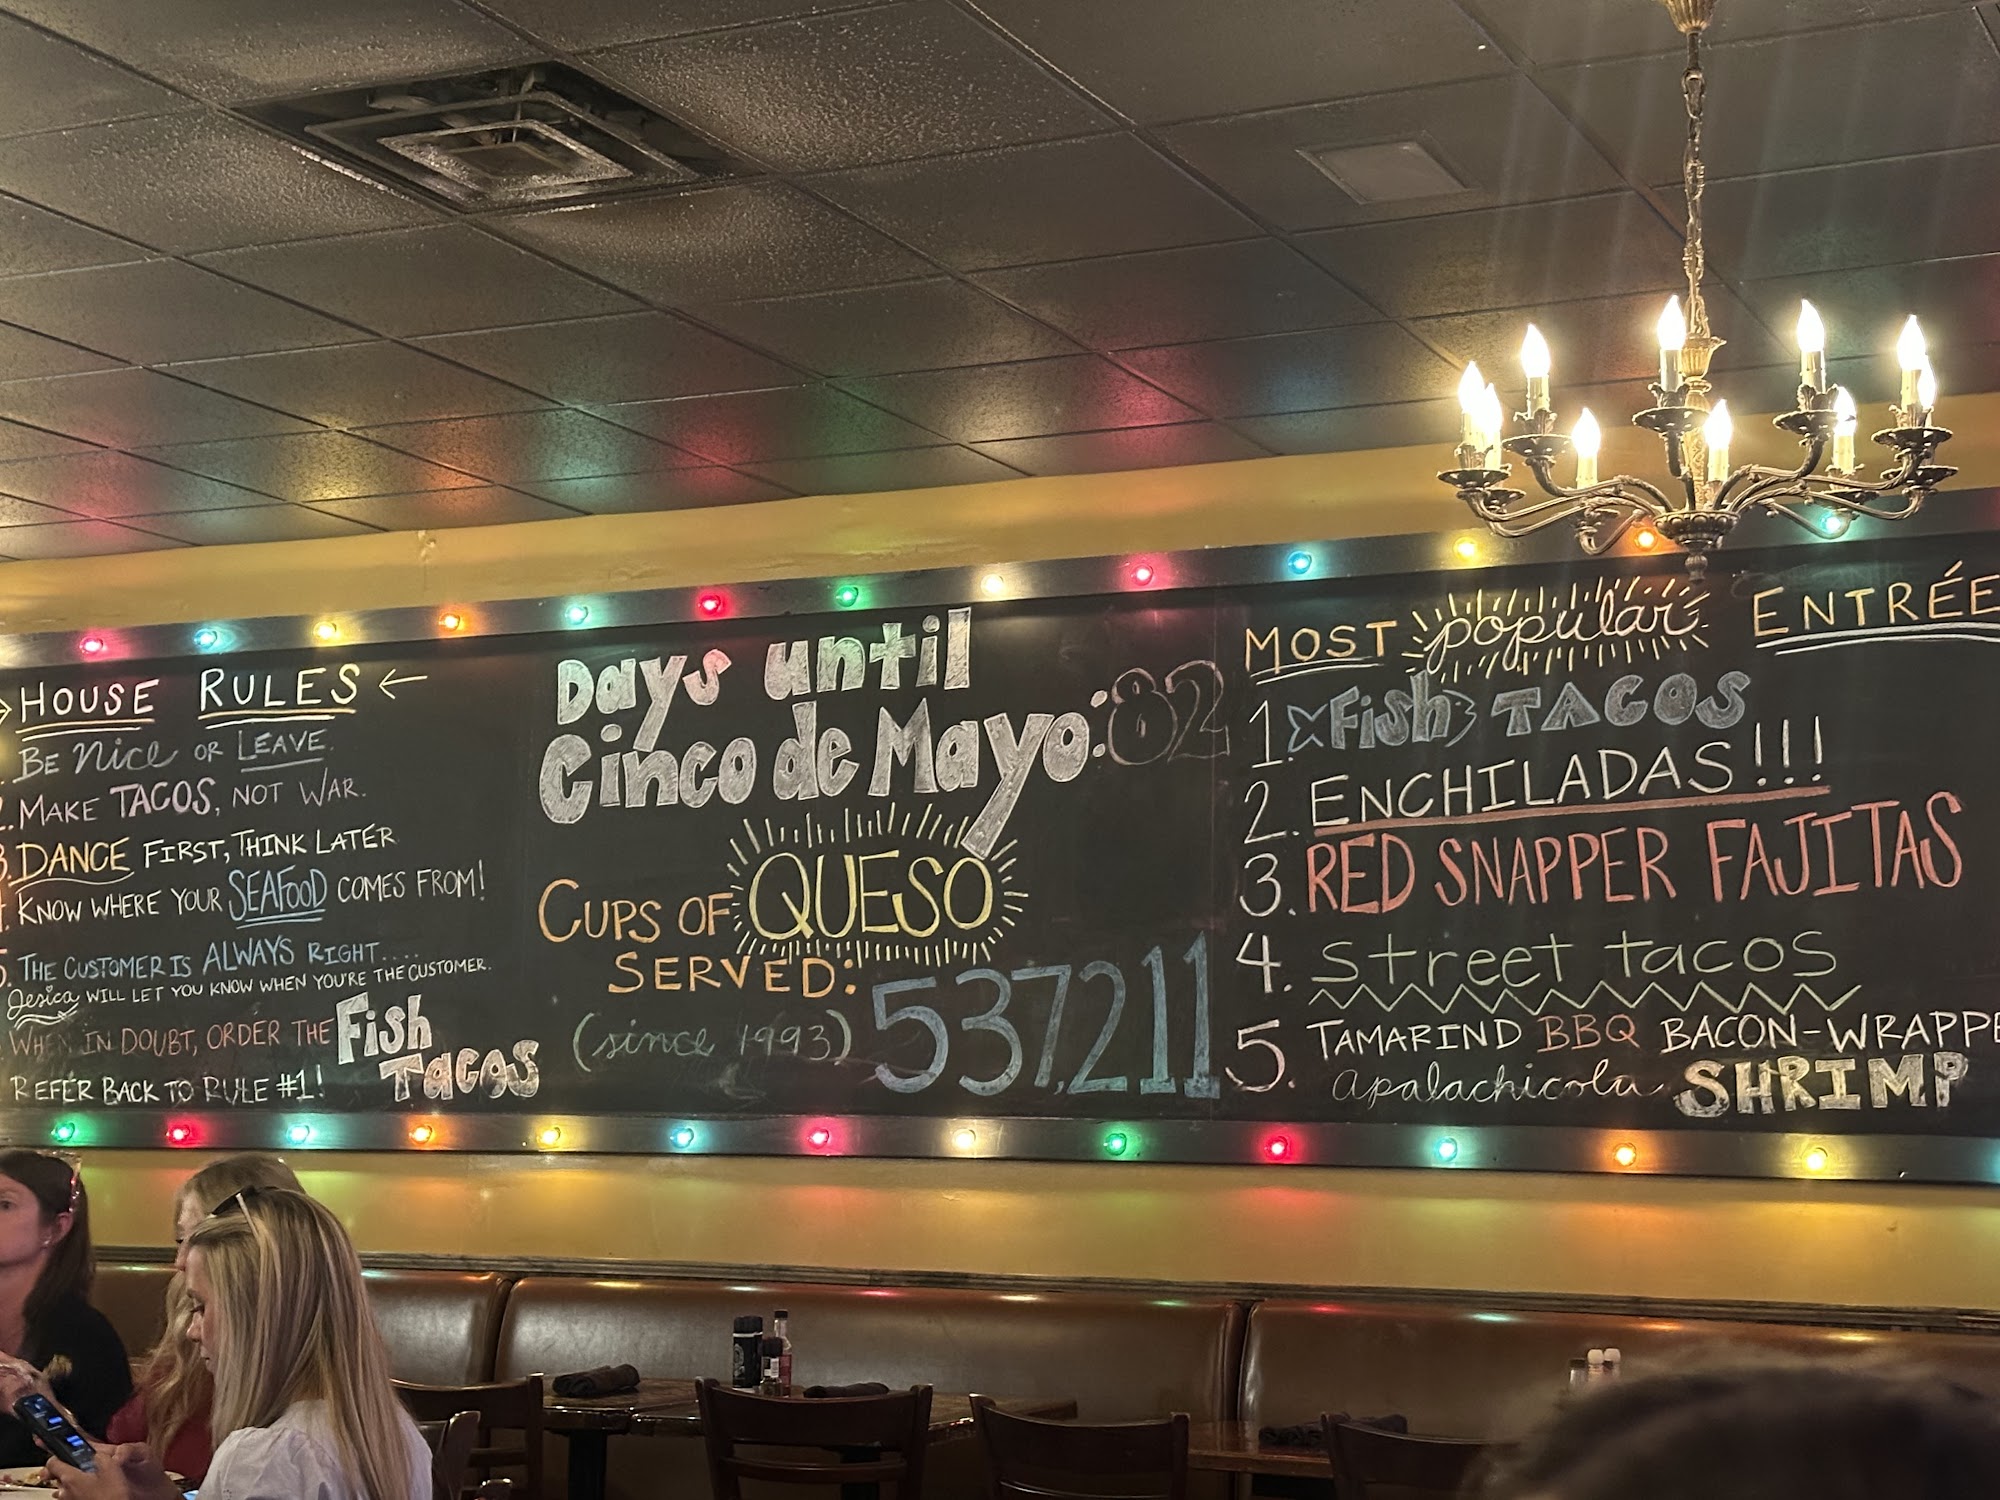 HOUSE RULES
BE Nice OR LEAVE.
2. MAKE TACOS, NOT WAR.
3. DANCE FIRST, THINK LATER
4. KNOW WHERE YOUR SEAFOOD COMES FROM!
5. THE CUSTOMER IS ALWAYS RIGHT....
Jesica WILL LET YOU KNOW WHEN YOU'RE THE CUSTOMER.
WHEN IN DOUBT, ORDER THE Fish TACOS
REFER BACK TO RULE #1!
Days until
Cinco de Mayo: 82
CUPS OF QUESO
SERVED:
(since 1993) 537,211
MOST popular ENTRÉE
1. Fish TACOS
2. ENCHILADAS!!!
3. RED SNAPPER FAJITAS
4. street tacos
5. TAMARIND BBQ BACON-WRAPPE
apalachicola SHRIMP